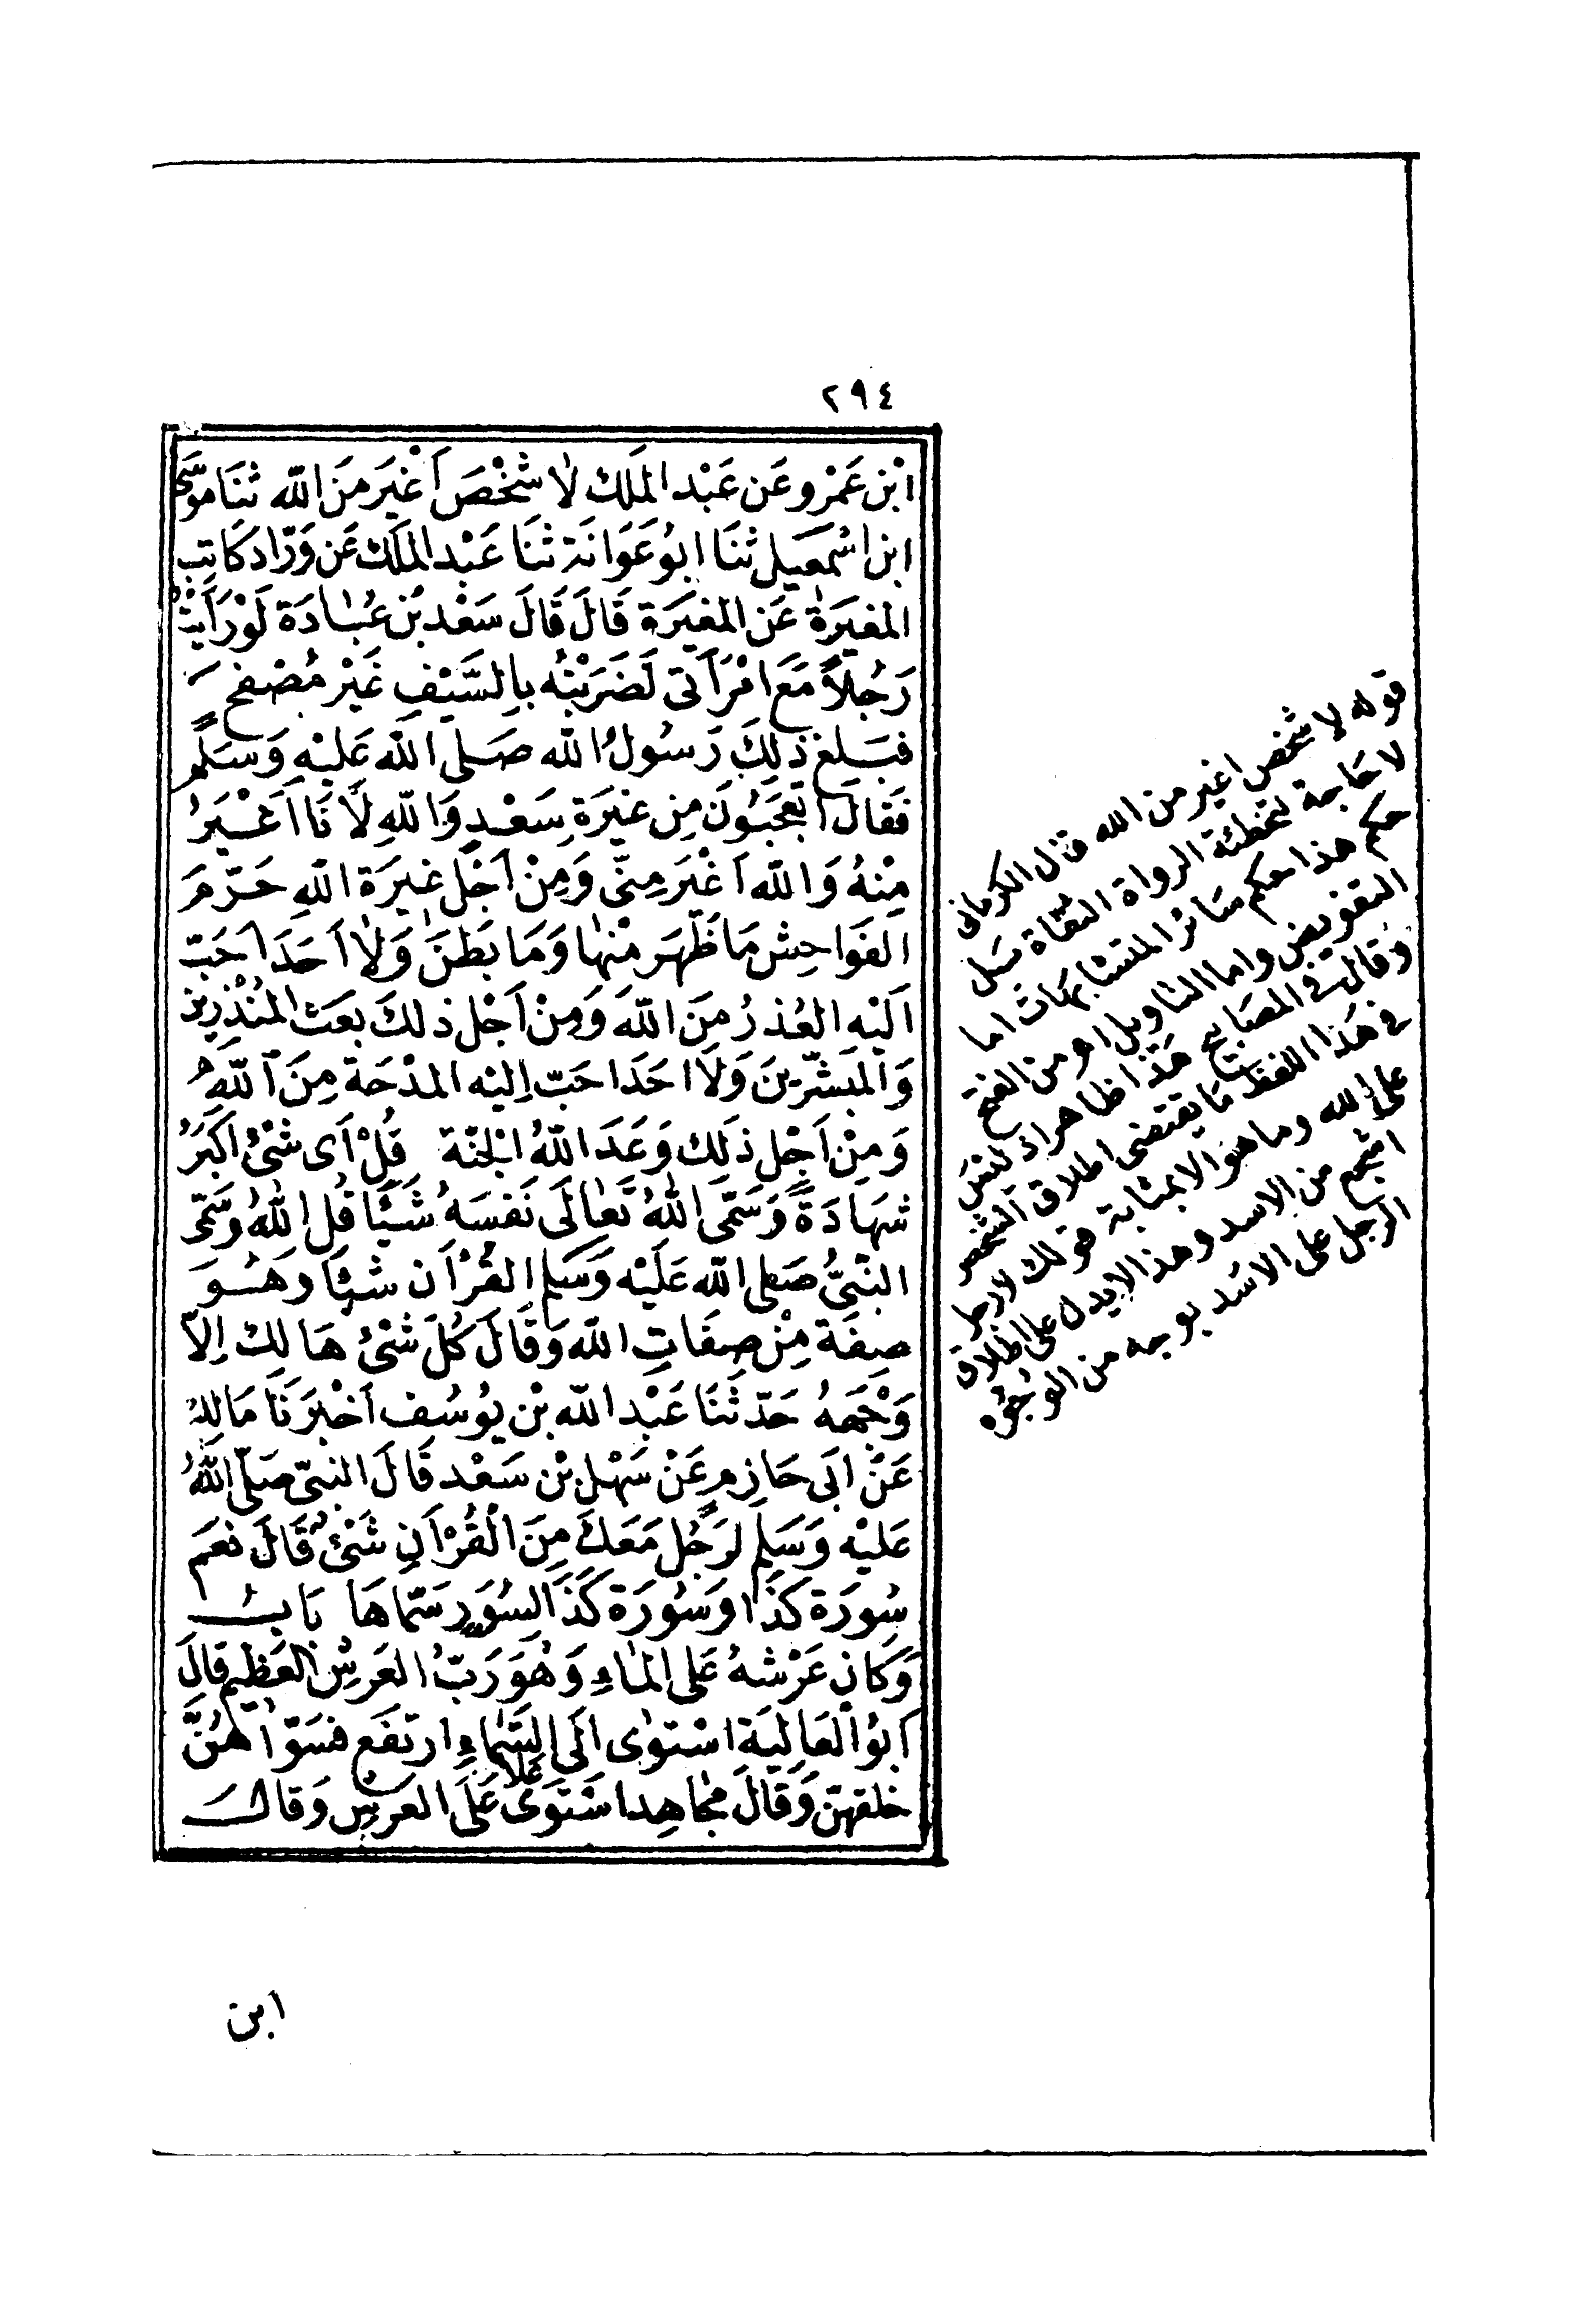 ٢٩٤
ابْن عَمْرو عَن عَبْد المَلَك لاَ شَخْصَ أَغْيَرَ مَنَ الله ثنَا موسَى
ابن اسْمعَيل ثنَا ابُو عَوَانَة ثنَا عَبْد الملَك عَن وَرّاد كَاتب
المغيَرَة عَن المغيَرَة قَالَ قَالَ سَعْد بْن عُبَادَة لَوْ رَأَيْتُ
رَجُلاً مَعَ امْرَأَتى لَضَرَبْتُه بِالسَّيْفِ غَيْر مُصْفح
فبَلغ ذلِكَ رَسُولُ الله صَلى الله عَليْهِ وَسَلم
فَقَالَ اتعْجَبُونَ مِن غيَرَة سَعْدٍ وَاللهِ لَأَنَا أَغْيَرُ
مِنْهُ وَالله أَغْيَر مِنّى وَمِنْ أَجْل غيَرَة اللهِ حَرّمَ
الفَوَاحِش مَا ظَهَرَ مْنهَا وَمَا بَطَنَ وَلاَ أَحَدَ أَحَبّ
اَلَيْهِ العُذرُ مِنَ اللهَ وَمِنْ أَجْل ذلكَ بعَثَ المُنْذِرِين
وَالمبَشّرينَ وَلاَ احَدَ احَبّ اِليْه المدْحَة مِنَ اللهِ
وَمِنْ اَجْل ذلَك وَعَدَ اللهُ الْجنّة قُلْ أَى شَىْءُ أَكَبَرُ
شهَادَةً وَسَمَّى اللهُ تَعَالَى نَفسَهُ شَيْئًا قُل اللهُ وَسَمَّى
النبىُّ صَلى الله عَلَيْه وَسَلم القُرْآن شيْئا وَهُوَ
صِفَة مِنْ صِفَاتِ الله وَقَالَ كُلّ شَىْءُ هَالِك اِلاّ
وَجْهَهُ حَدّثنَا عَبْد الله بْن يُوسُف اَخْبَرَنَا مَالِكُ
عَنْ ابَى حَازِم عَنْ سَهْل بْن سَعْد قَالَ النبىّ صَلّى اللهُ
عَليْه وَسَلم لرَجُل مَعَكَ مِنَ الْقُرْآنِ شَىْءُ قَالَ نعَم
سُورَة كَذَا وَسُورَة كَذَا لسُوَرِ سَمّاهَا بَابُ
وَكَان عَرْشهُ عَلى المَاءِ وَهُوَ رَبّ العَرشِ العَظِيم قالَ
اَبُو الْعَالِيَة اسْتَوى الَى السَّمَاءِ ارتفَع فسَوّاهُنَّ
خلقهنّ وَقَالَ مجَاهِد اسْتَوَى عَلاَ عَلَى العَرشِ وَقالَ
ابن
قوله لا شخص اغير من الله قال الكرمانى
لا حاجة لتخطئة الرواة الثقاة بل
حكم هذا حكم سائر المتشابهات اما
التفويض واما التاويل اه من الفتح
وقال فى المصابيح هذا ظاهر اذ ليس
فى هذا اللفظ ما يقتضى اطلاق الشخص
على الله وما هو الا بمثابة قولك لا رجل
اشجع من الاسد وهذا لا يدل على اطلاق
الرجل على الاسد بوجه من الوجوه